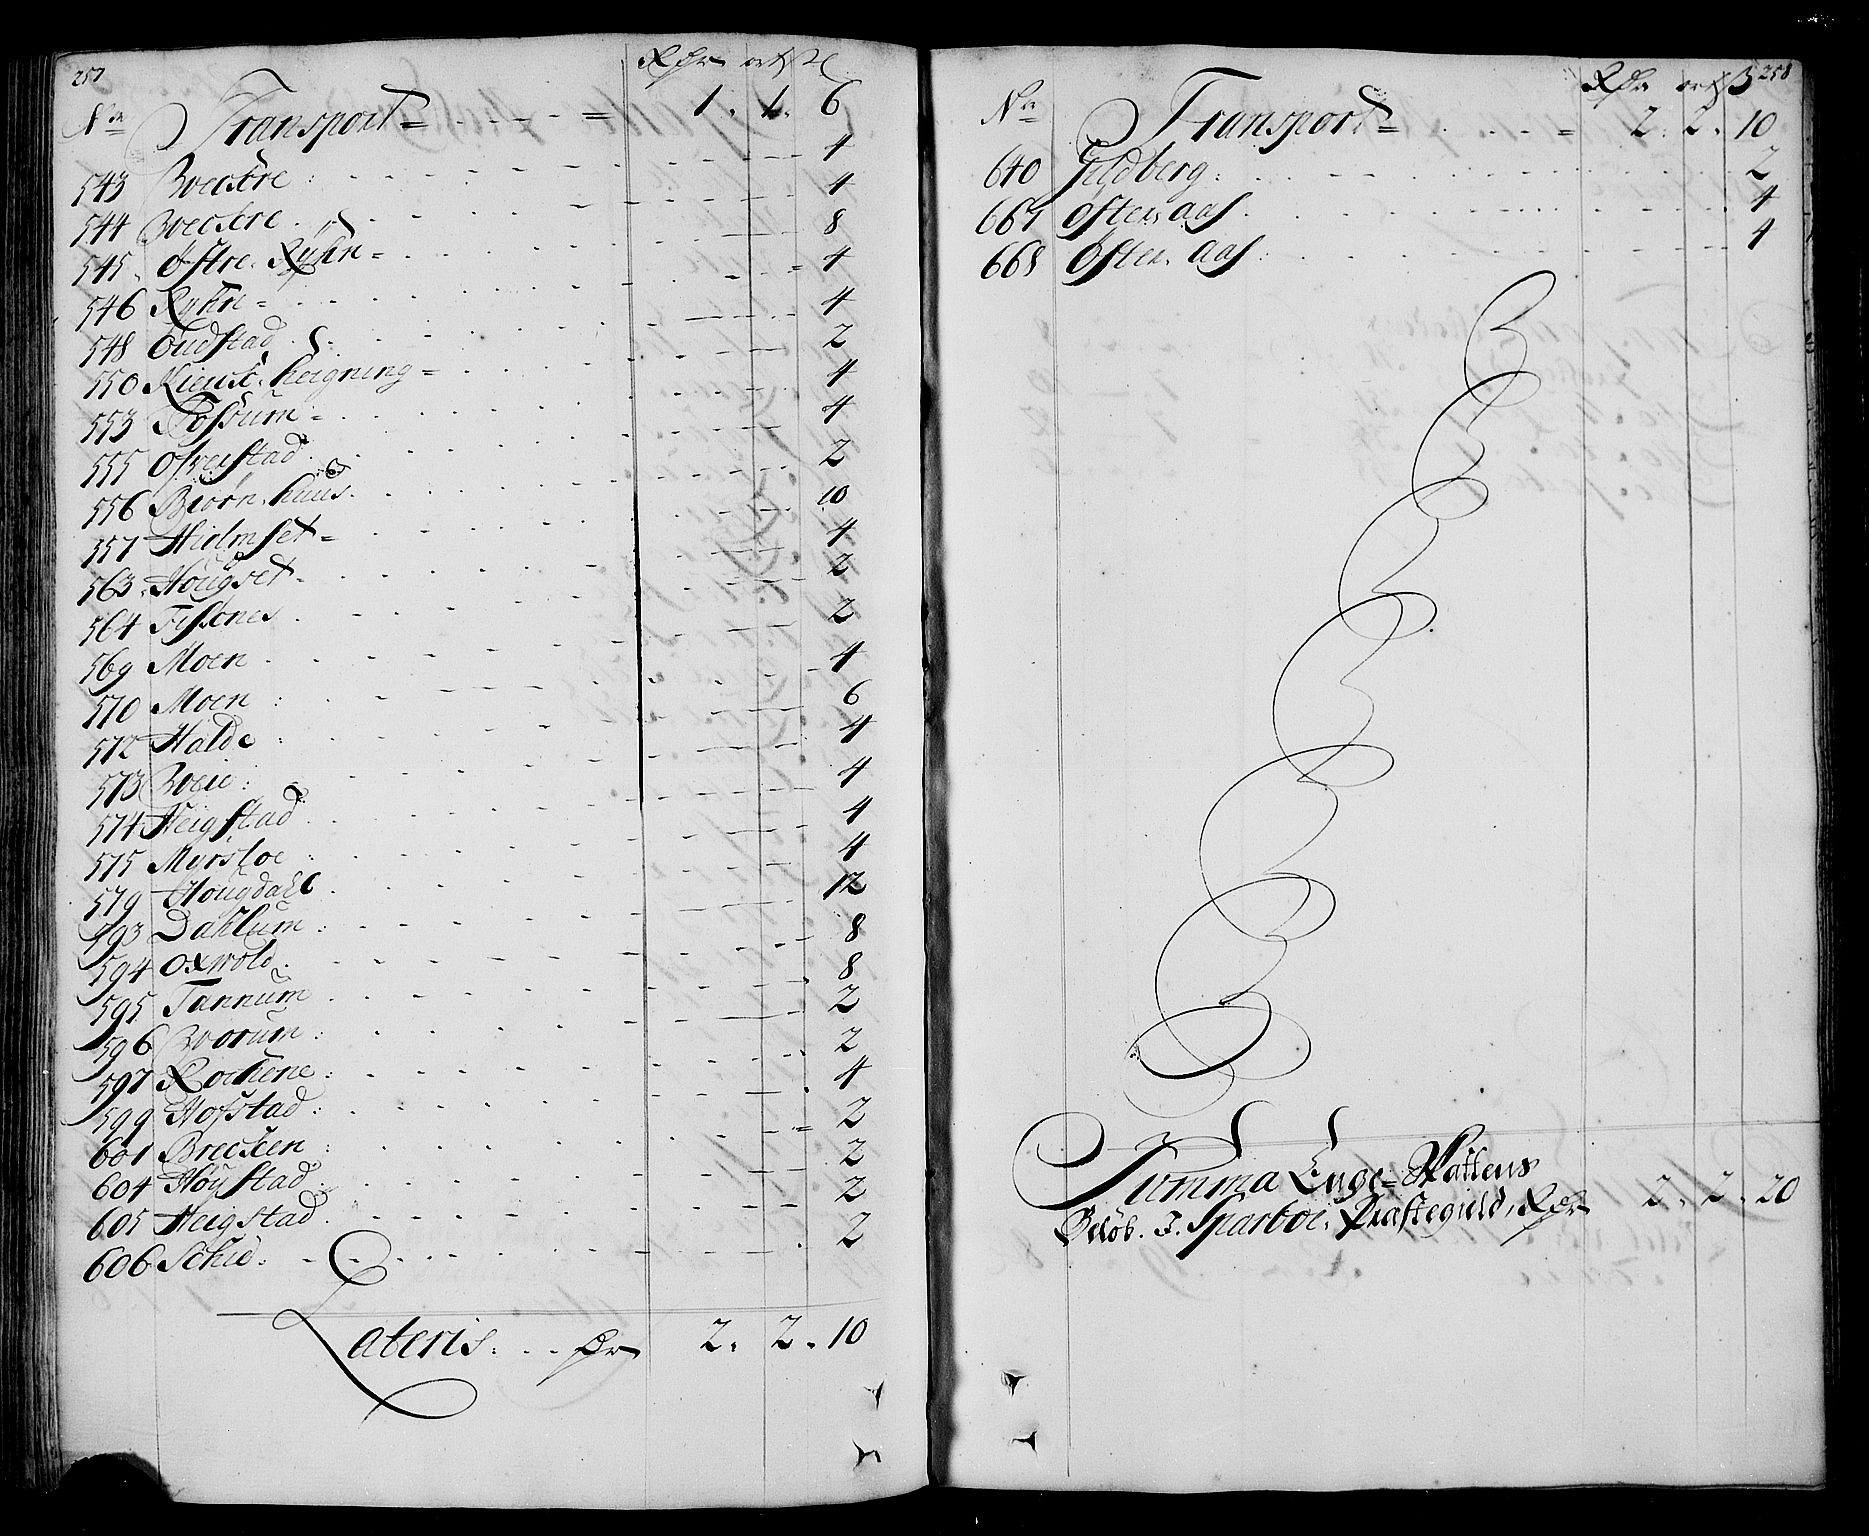 257
Rdr ort ß
No Transport = - - - = 1. 1. 6
543 Bvestre : 4
544 Bvestre . 4
545. Østre. Ryhn = 8
546 Ryhn = 4
548 Oudstad . 4
550 Kiensl. heigning = 2
553 Fossum = 4
555 Ofveistad . 4
556 Biørn. huus. 2
557 Hielmset = 10
563. Hougset . 4
564 Fissenes . 2
569 Moen . 2
570 Moen : 4
572 Halde : 6
573 Boeie : 4
574 Heigstad . 4
575 Myrsloe : 4
579 Hougdahl . 4
593 Dahlum : 12
594 Oxwold . 8
595 Tannum . 8
596 Bvorum : 2
597 Rochene : 2
599 Hofstad : 4
601 Brecken : 2
604 Høystad : 2
605 Heigstad . 2
606 Schie : 2
Lateris : . . Dr 2. 2. 10
258
Rdr ort ß
No Transport = . . . = 2. 2. 10
640 Gildberg : 2
667 Ofter. aas . 4
668 Ofter. aas : 4
Summa Enge = Skattens
Beløb. I. Sparboe. Præstegield, Rdr 2. 2. 20